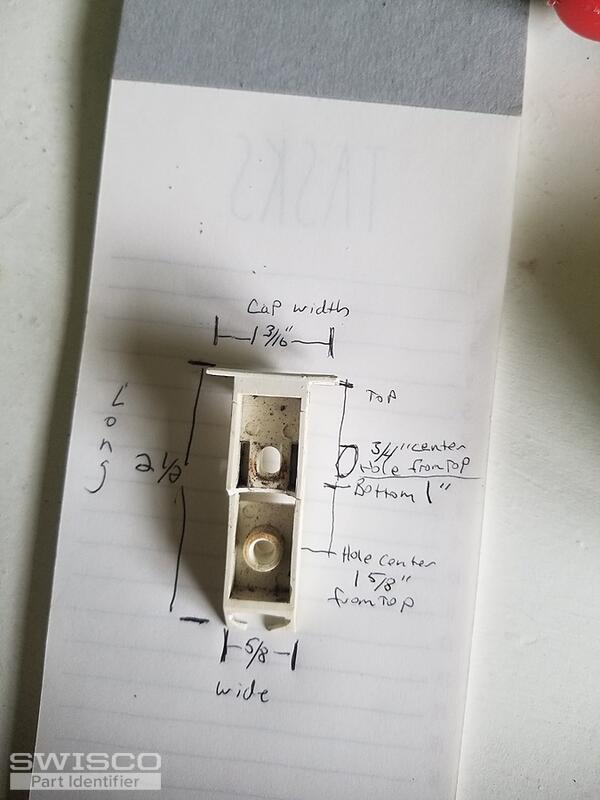 TASKS
Cap width
1 3/16"
TOP
Long
2 1/2
3/4" center
Hole from TOP
Bottom 1"
Hole center
1 5/8"
from TOP
5/8
wide
SWISCO
Part Identifier